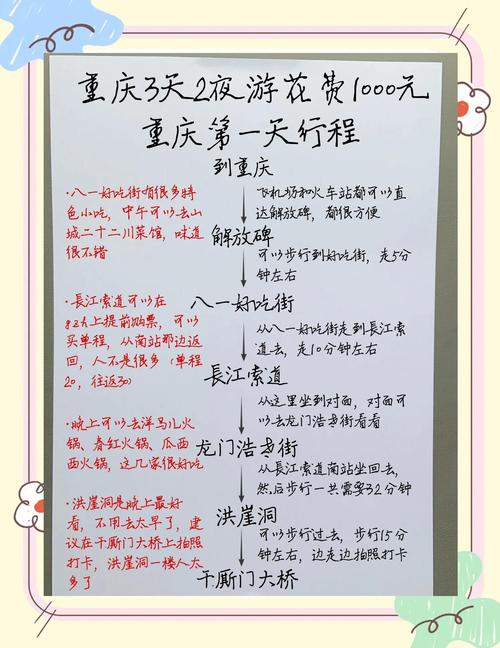 重庆3天2夜游花费1000元
重庆第一天行程
到重庆
飞机场和火车站都可以直
达解放碑，都很方便
·八一好吃街有很多特
色小吃，中午可以去山
城二十二川菜馆，味道
很不错
解放碑
可以步行到好吃街，走5分
钟左右
八一好吃街
·長江索道可以在
提前购票，可以
买单程，从南站那边返
回，人不是很多（单程
20，往返30）
从八一好吃街走到長江索
道去，走10分钟左右
長江索道
从这里坐到对面，对面可
以去龙门浩老街看看
龙门浩老街
·晚上可以去洋马儿火
锅、春红火锅、瓜西
西火锅，这几家很好吃
从長江索道南站坐回去，
然后步行一共需要32分钟
洪崖洞
·洪崖洞是晚上最好
看，不用去太早了，建
议在千厮门大桥上拍照
打卡，洪崖洞一楼人太
多了
可以步行过去，步行15分
钟左右，边走边拍照打卡
千厮门大桥